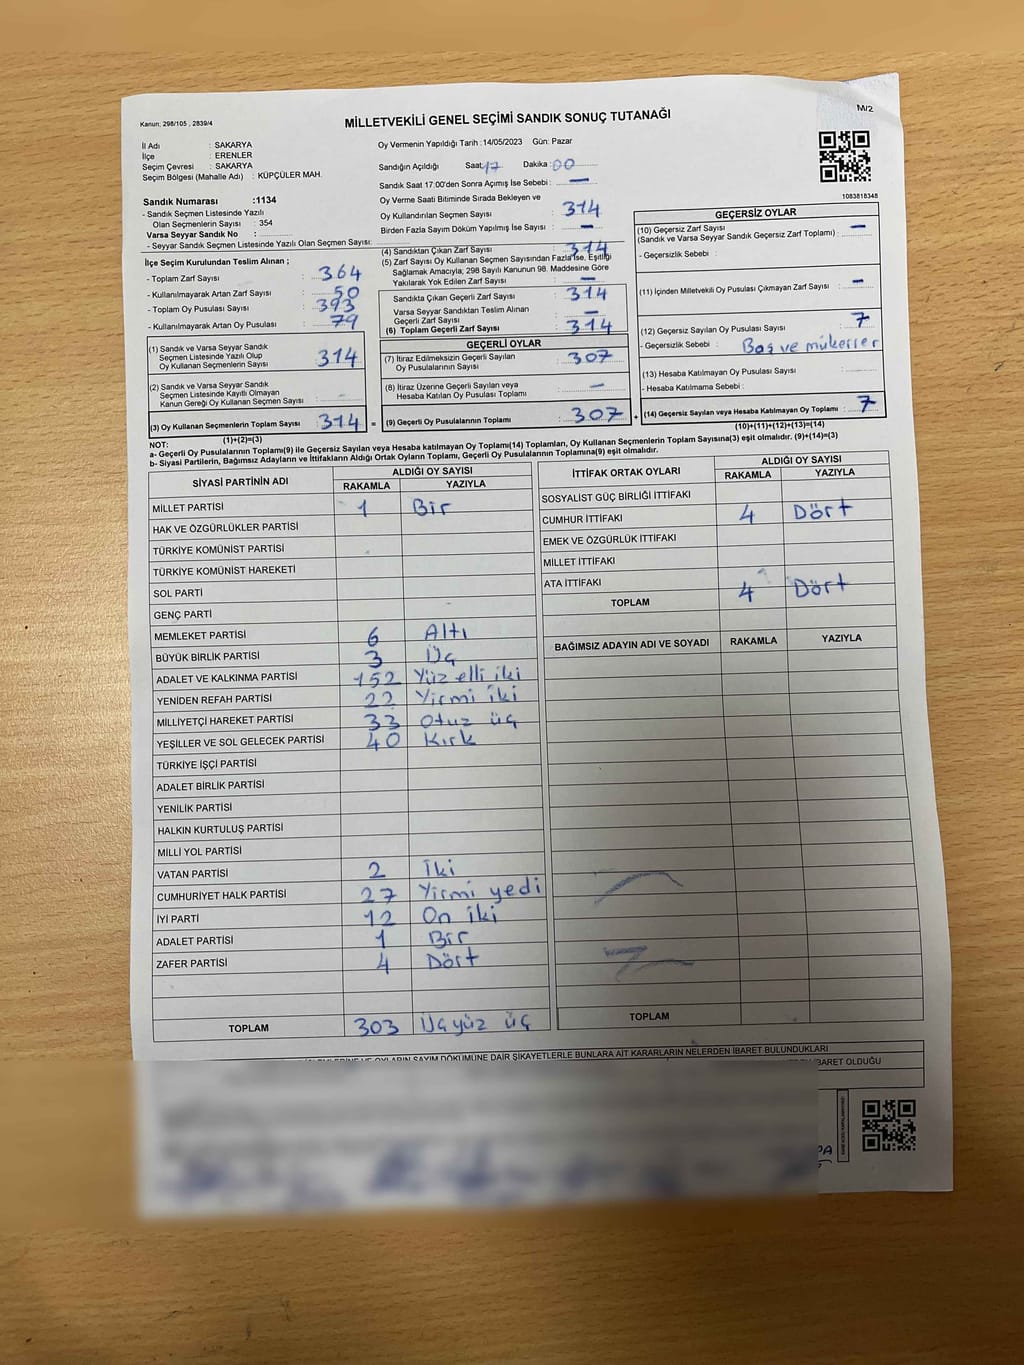 Kanun: 298/105 , 2839/4
M/2
MİLLETVEKİLİ GENEL SEÇİMİ SANDIK SONUÇ TUTANAĞI
İl Adı : SAKARYA
İlçe : ERENLER
Seçim Çevresi : SAKARYA
Seçim Bölgesi (Mahalle Adı) : KÜPÇÜLER MAH.
Oy Vermenin Yapıldığı Tarih :14/05/2023 Gün: Pazar
Sandığın Açıldığı Saat:17 Dakika:00
Sandık Saat 17:00'den Sonra Açımış İse Sebebi : —
1083818348
Sandık Numarası :1134
- Sandık Seçmen Listesinde Yazılı
Olan Seçmenlerin Sayısı : 354
Varsa Seyyar Sandık No :
- Seyyar Sandık Seçmen Listesinde Yazılı Olan Seçmen Sayısı:
Oy Verme Saati Bitiminde Sırada Bekleyen ve
Oy Kullandırılan Seçmen Sayısı : 314
Birden Fazla Sayım Döküm Yapılmış İse Sayısı : —
İlçe Seçim Kurulundan Teslim Alınan ;
- Toplam Zarf Sayısı : 364
- Kullanılmayarak Artan Zarf Sayısı : 50
- Toplam Oy Pusulası Sayısı : 393
- Kullanılmayarak Artan Oy Pusulası : 79
(1) Sandık ve Varsa Seyyar Sandık
Seçmen Listesinde Yazılı Olup
Oy Kullanan Seçmenlerin Sayısı : 314
(2) Sandık ve Varsa Seyyar Sandık
Seçmen Listesinde Kayıtlı Olmayan
Kanun Gereği Oy Kullanan Seçmen Sayısı :
(3) Oy Kullanan Seçmenlerin Toplam Sayısı : 314 =
(1)+(2)=(3)
(4) Sandıktan Çıkan Zarf Sayısı : 314
(5) Zarf Sayısı Oy Kullanan Seçmen Sayısından Fazla İse, Eşitliği
Sağlamak Amacıyla; 298 Sayılı Kanunun 98. Maddesine Göre
Yakılarak Yok Edilen Zarf Sayısı : —
Sandıkta Çıkan Geçerli Zarf Sayısı : 314
Varsa Seyyar Sandıktan Teslim Alınan
Geçerli Zarf Sayısı : —
(6) Toplam Geçerli Zarf Sayısı : 314
GEÇERLİ OYLAR
(7) İtiraz Edilmeksizin Geçerli Sayılan
Oy Pusulalarının Sayısı : 307
(8) İtiraz Üzerine Geçerli Sayılan veya
Hesaba Katılan Oy Pusulası Toplamı : —
(9) Geçerli Oy Pusulalarının Toplamı : 307 +
GEÇERSİZ OYLAR
(10) Geçersiz Zarf Sayısı : —
(Sandık ve Varsa Seyyar Sandık Geçersiz Zarf Toplamı)
- Geçersizlik Sebebi :
(11) İçinden Milletvekili Oy Pusulası Çıkmayan Zarf Sayısı : —
(12) Geçersiz Sayılan Oy Pusulası Sayısı : 7
- Geçersizlik Sebebi : Boş ve mükerrer
(13) Hesaba Katılmayan Oy Pusulası Sayısı :
- Hesaba Katılmama Sebebi :
(14) Geçersiz Sayılan veya Hesaba Katılmayan Oy Toplamı : 7
(10)+(11)+(12)+(13)=(14)
NOT:
a- Geçerli Oy Pusulalarının Toplamı(9) ile Geçersiz Sayılan veya Hesaba katılmayan Oy Toplamı(14) Toplamları, Oy Kullanan Seçmenlerin Toplam Sayısına(3) eşit olmalıdır. (9)+(14)=(3)
b- Siyasi Partilerin, Bağımsız Adayların ve İttifakların Aldığı Ortak Oyların Toplamı, Geçerli Oy Pusulalarının Toplamına(9) eşit olmalıdır.
SİYASİ PARTİNİN ADI ALDIĞI OY SAYISI
RAKAMLA YAZIYLA
MİLLET PARTİSİ 1 Bir
HAK VE ÖZGÜRLÜKLER PARTİSİ
TÜRKİYE KOMÜNİST PARTİSİ
TÜRKİYE KOMÜNİST HAREKETİ
SOL PARTİ
GENÇ PARTİ
MEMLEKET PARTİSİ 6 Altı
BÜYÜK BİRLİK PARTİSİ 3 Üç
ADALET VE KALKINMA PARTİSİ 152 Yüz elli iki
YENİDEN REFAH PARTİSİ 22 Yirmi iki
MİLLİYETÇİ HAREKET PARTİSİ 33 Otuz üç
YEŞİLLER VE SOL GELECEK PARTİSİ 40 Kırk
TÜRKİYE İŞÇİ PARTİSİ
ADALET BİRLİK PARTİSİ
YENİLİK PARTİSİ
HALKIN KURTULUŞ PARTİSİ
MİLLİ YOL PARTİSİ
VATAN PARTİSİ 2 İki
CUMHURİYET HALK PARTİSİ 27 Yirmi yedi
İYİ PARTİ 12 On iki
ADALET PARTİSİ 1 Bir
ZAFER PARTİSİ 4 Dört
TOPLAM 303 Üçyüz üç
İTTİFAK ORTAK OYLARI ALDIĞI OY SAYISI
RAKAMLA YAZIYLA
SOSYALİST GÜÇ BİRLİĞİ İTTİFAKI
CUMHUR İTTİFAKI 4 Dört
EMEK VE ÖZGÜRLÜK İTTİFAKI
MİLLET İTTİFAKI
ATA İTTİFAKI
TOPLAM 4 Dört
BAĞIMSIZ ADAYIN ADI VE SOYADI RAKAMLA YAZIYLA
TOPLAM
OYLARIN SAYIM DÖKÜMÜNE DAİR ŞİKAYETLERLE BUNLARA AİT KARARLARIN NELERDEN İBARET BULUNDUKLARI
İBARET OLDUĞU